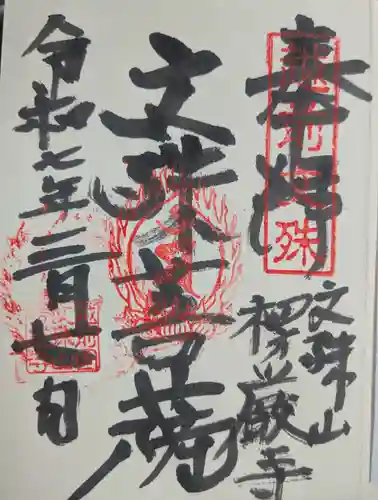 奉拝
文殊山
楞厳寺
文殊菩薩
令和七年三月七日